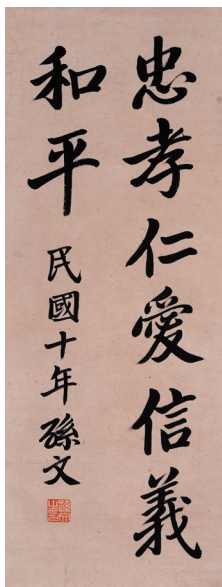 忠孝仁愛信義
和平
民國十年孫文